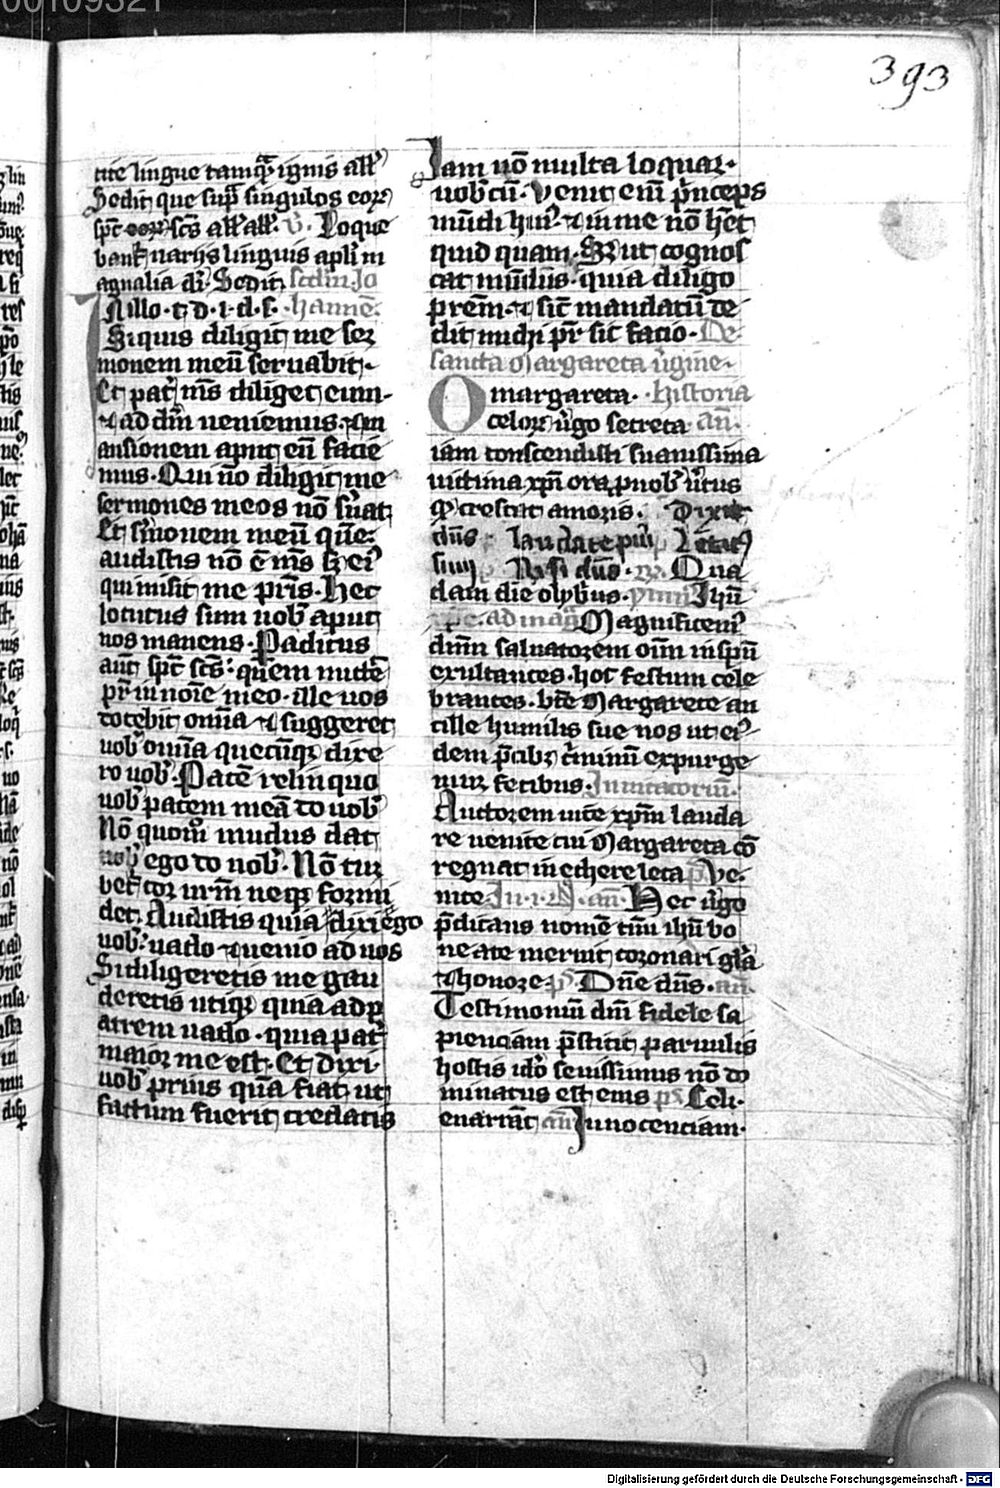 393
tite lingue tamq̃ ignis all'
Sedit que sup̃ singulos eor̃
sp̃c sc̃s all' all'. v̄. Loque
bant̃ narijs linguis apl'i m
agnalia di. Sedit scdm Jo
Jn illo · t · d · i · d · s · hannē.
Siquis diligit me ser
monem meū seruabit.
Et pat̃ m̃s diliget eum
⁊ ad eūm ueniemus ⁊ m
ansionem aput eū facie
mus. Qui nō diligit me
sermones meos nō s'uat
Et s'monem meū quē
audistis nō ē m̃s sꝫ ei'
qui misit me pr̃is. Hec
locutus sum uob' aput
uos manens. Paclitus
aūt sp̃c sc̃s: quem mittē
pr̃ in noīe meo. ille uos
docebit om̃ia ⁊ suggeret
uob' om̃ia quecūqꝫ dixe
ro uob'. Pacē relinquo
uob' pacem meā do uob'
Nō quom̃o mūdus dat
uob' ego do uob'. Nō tur
bet̃ cor ur̃m neqꝫ formi
det. Audistis quia dixi ego
uob': uado ⁊ uenio ad uos
Si diligeretis me gau
deretis utiqꝫ quia ad p
atrem uado. quia pat̃
maior me est. Et dixi
uob' prius quā fiat ut
factum fuerit credatis
Jam nō multa loquar
uob'cū. Venit eni p̃nceps
mūdi hui'. ⁊ in me nō h̃et
quid quam. Sꝫ ut cognos
cat mūdus quia diligo
pr̃em. ⁊ sic̃ mandatū de
dit michi pr̃ sic facio. De
sancta Margareta ũgine.
O margareta. historia
celor̃ ũgo secreta an̄.
iam conscendisti suauissima
uictima xp̃i ora p nob' ũtus
q̃ crescat amoris. Dixit
dn̄s laudate pu'i Letat'
sum Nisi dn̄s. Qua
dam die olybrius. ymn' Jh̃u
xp̃e. ad mag̃ Magnificem'
dn̄m saluatorem om̃i in sp̃u
exultantes. hoc festum cele
brantes. bt̃e Margarete an
cille humilis sue nos ut ei'
dem p̃cibꝫ c̃minū expurge
mur fecibus. Jnuitatoriū.
Auctorem uite xp̃m lauda
re uenite cui Margareta cō
regnat in ethere leta p̃s Ve
nite. Jn . i . N̄ . an̄. Hec ũgo
p̃dicans nomē tuū ih̃u bo
ne a te meruit coronari gl'a
⁊ honore. p̃s. Dn̄e dn̄s. an̄
Testimoniū dn̄i fidele sa
pienciam p̃stitit paruulis
hostis id'o seuissimus nō do
minatus est eius p̃s Celi
enarrāt an̄ Jnnocenciam.
Digitalisierung gefördert durch die Deutsche Forschungsgemeinschaft - DFG